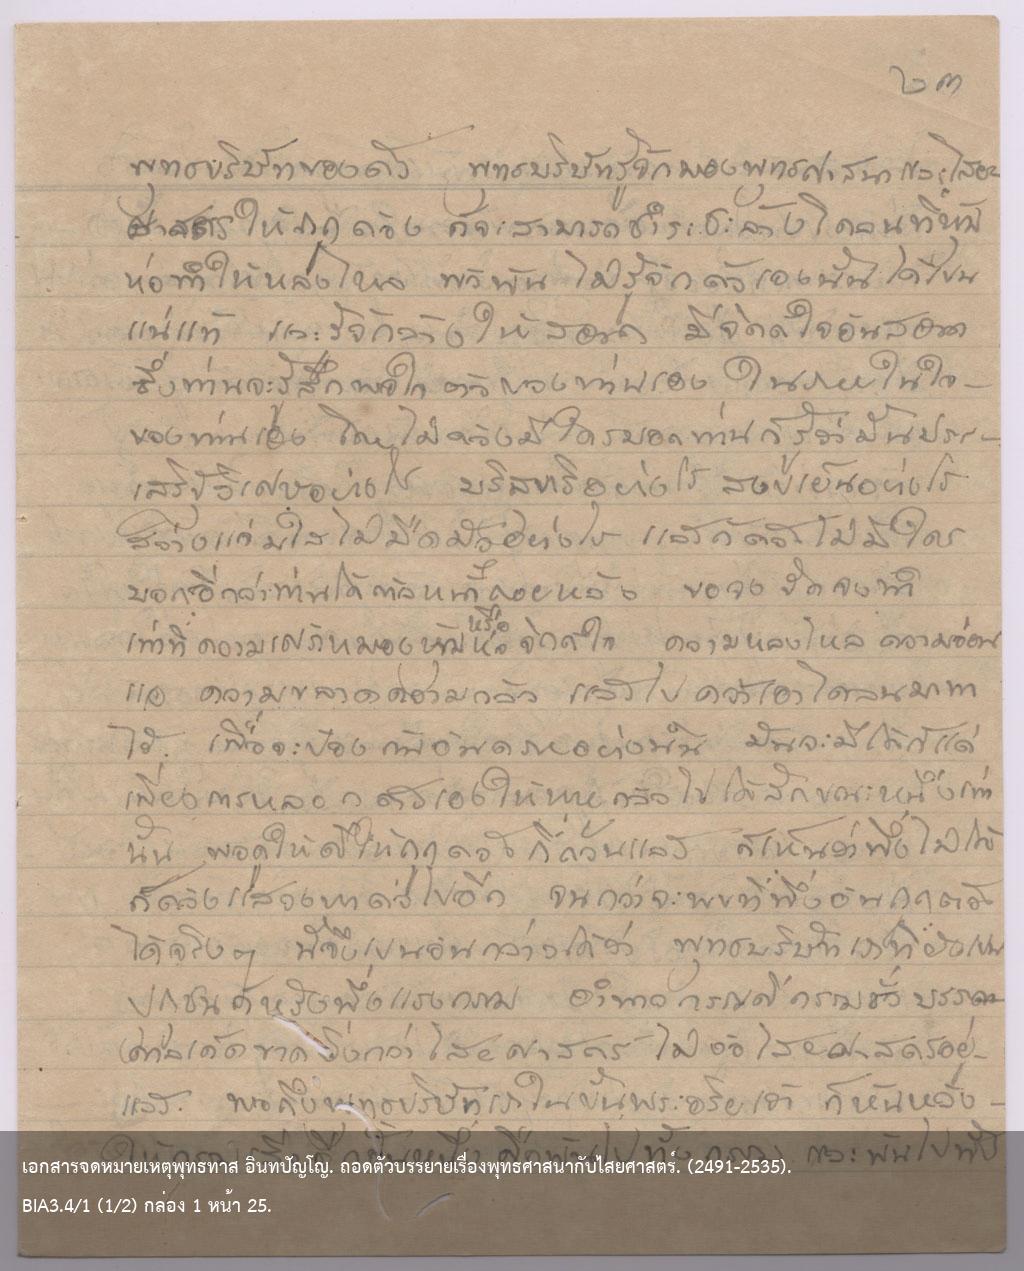 ๒๓
พุทธบริษัทของตัว พุทธบริษัทรู้จักพระพุทธศาสนาและไสย
ศาสตร์ให้ถูกต้อง ก็จะสามารถชำระชะล้างโคลนที่
ห่อทำให้หลงใหล ไม่รู้จักตัวเองนั้นได้เป็น
แน่แท้ และรู้จักล้างให้สอาด มีจิตต์ใจอันสอาด
ซึ่งท่านจะรู้สึกพอใจ ตัวของท่านเอง ในภายในใจ
ของท่านเอง โดยไม่ต้องมีใครบอก ท่านก็รู้ว่ามันประ-
เสริฐวิเศษอย่างไร บริสุทธิ์อย่างไร สงบเย็นอย่างไร
สว่างแจ่มใสไม่มืดมัวอย่างไร แล้วก็ ไม่มีใคร
บอกอีกว่าท่านได้ ถอยหลัง ขอจง
เท่าที่ความเศร้าหมองหุ้มห่อ หรือ จิตต์ใจ ความหลงใหล ความอ่อน
แอ ความขลาดความกลัว แล้วไปคว้าเอาโคลนมาทา
ไว้. เพื่อจะป้องกันอันตรายอย่างนั้น มันจะมีได้ก็แต่
เพียงการหลอกตัวเองให้หายกลัวไปได้สักขณะหนึ่งเท่า
นั้น พอดูให้ดีให้ถูกต้องถี่ถ้วนแล้ว ก็เห็นว่าพึ่งไม่ได้
ก็ต้องแสวงหาต่อไปอีก จนกว่าจะพบที่พึ่งอันถูกต้อง
ได้จริงๆ นี่จึงเป็นอันกล่าวได้ว่า พุทธบริษัทเราที่ยังเป็น
ปุถุชนก็หวังพึ่งแรงกรรม อำนาจกรรมดีกรรมชั่ว
เด็ดขาดยิ่งกว่าไสยศาสตร์ ไม่ง้อไสยศาสตร์อยู่
แล้ว. พอถึงพุทธบริษัทเราในขั้นพระอริยเจ้า ก็หันหลัง
เอกสารจดหมายเหตุพุทธทาส อินทปัญโญ. ถอดตัวบรรยายเรื่องพุทธศาสนากับไสยศาสตร์. (2491-2535).
BIA3.4/1 (1/2) กล่อง 1 หน้า 25.